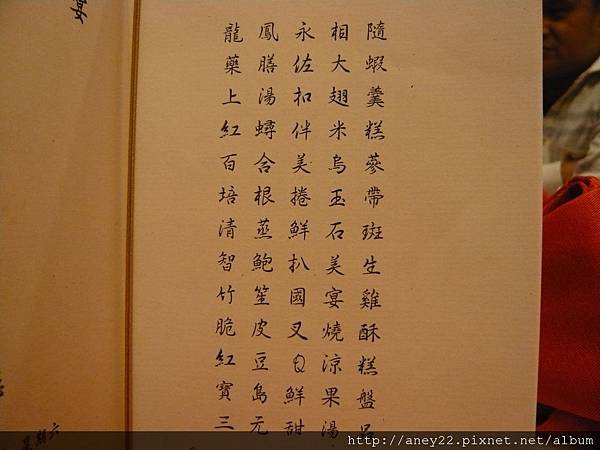 宴
龍鳳永相隨
藥膳佐大蝦
上湯扣翅羹
紅蟳伴米糕
百合美烏蔘
培根捲玉帶
清蒸鮮石斑
智鮑扒美生
竹笙國宴雞
脆皮叉燒酥
紅豆Q涼糕
寶島鮮果盤
三元甜湯品
星期六
http://aney22.pixnet.net/album